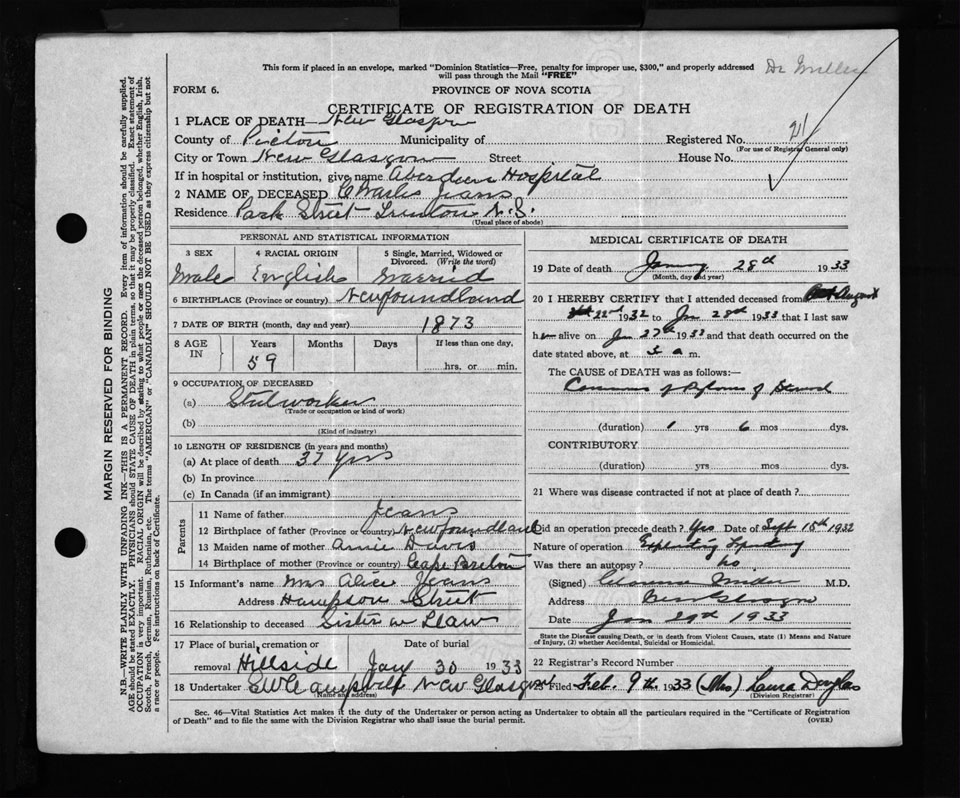 This form if placed in an envelope, marked "Dominion Statistics—Free, penalty for improper use, $300," and properly addressed
will pass through the Mail "FREE"
Dr Miller
FORM 6. PROVINCE OF NOVA SCOTIA
CERTIFICATE OF REGISTRATION OF DEATH
1 PLACE OF DEATH— New Glasgow
County of Pictou Municipality of Registered No. 21
(For use of Registrar General only)
City or Town New Glasgow Street House No.
If in hospital or institution, give name Aberdeen Hospital
2 NAME OF DECEASED Charles Jeans
Residence Park Street Trenton N.S.
(Usual place of abode)
PERSONAL AND STATISTICAL INFORMATION
3 SEX 4 RACIAL ORIGIN 5 Single, Married, Widowed or
Divorced. (Write the word)
Male English Married
6 BIRTHPLACE (Province or country) Newfoundland
7 DATE OF BIRTH (month, day and year) 1873
8 AGE IN Years Months Days If less than one day,
59 hrs. or min.
9 OCCUPATION OF DECEASED
(a) Steelworker
(Trade or occupation or kind of work)
(b)
(Kind of industry)
10 LENGTH OF RESIDENCE (in years and months)
(a) At place of death 37 yrs
(b) In province
(c) In Canada (if an immigrant)
Parents
11 Name of father Jeans
12 Birthplace of father (Province or country) Newfoundland
13 Maiden name of mother Annie Davis
14 Birthplace of mother (Province or country) Cape Breton
15 Informant's name Mrs Alice Jeans
Address Hampson Street
16 Relationship to deceased Sister in Law
17 Place of burial, cremation or Date of burial
removal Hillside Jany 30 1933
18 Undertaker New Glasgow
(Name and address)
MEDICAL CERTIFICATE OF DEATH
19 Date of death 28th 1933
(Month, day and year)
20 I HEREBY CERTIFY that I attended deceased from August
22nd 1932 to Jan 28th 1933 that I last saw
h alive on Jan 27th 1933 and that death occurred on
date stated above, at 3 a m.
The CAUSE OF DEATH was as follows:—
of Pylorus of Stomach
(duration) 1 yrs 6 mos dys.
CONTRIBUTORY
(duration) yrs mos dys.
21 Where was disease contracted if not at place of death?
Did an operation precede death? Yes Date of Sept 15th 1932
Nature of operation
Was there an autopsy? no
(Signed) M.D.
Address New Glasgow
Date Jan 29th 1933
State the Disease causing Death, or in death from Violent Causes, state (1) Means and Nature
of Injury, (2) whether Accidental, Suicidal or Homicidal.
22 Registrar's Record Number
23 Filed Feb. 9th 1933 (Mrs) Laura Douglas
(Division Registrar)
Sec. 46—Vital Statistics Act makes it the duty of the Undertaker or person acting as Undertaker to obtain all the particulars required in the "Certificate of Registration
of Death" and to file the same with the Division Registrar who shall issue the burial permit. (OVER)
MARGIN RESERVED FOR BINDING
N.B.—WRITE PLAINLY WITH UNFADING INK—THIS IS A PERMANENT RECORD. Every item of information should be carefully supplied.
AGE should be stated EXACTLY. PHYSICIANS should STATE CAUSE OF DEATH in plain terms, so that it may be properly classified. Exact statement of
OCCUPATION is very important. RACIAL ORIGIN will be described by stating to what people or race the deceased person belonged, whether English, Irish,
Scotch, French, German, Russian, Ruthenian, etc. The terms "AMERICAN" or "CANADIAN" SHOULD NOT BE USED as they express citizenship but not
a race or people. Fee instructions on back of Certificate.